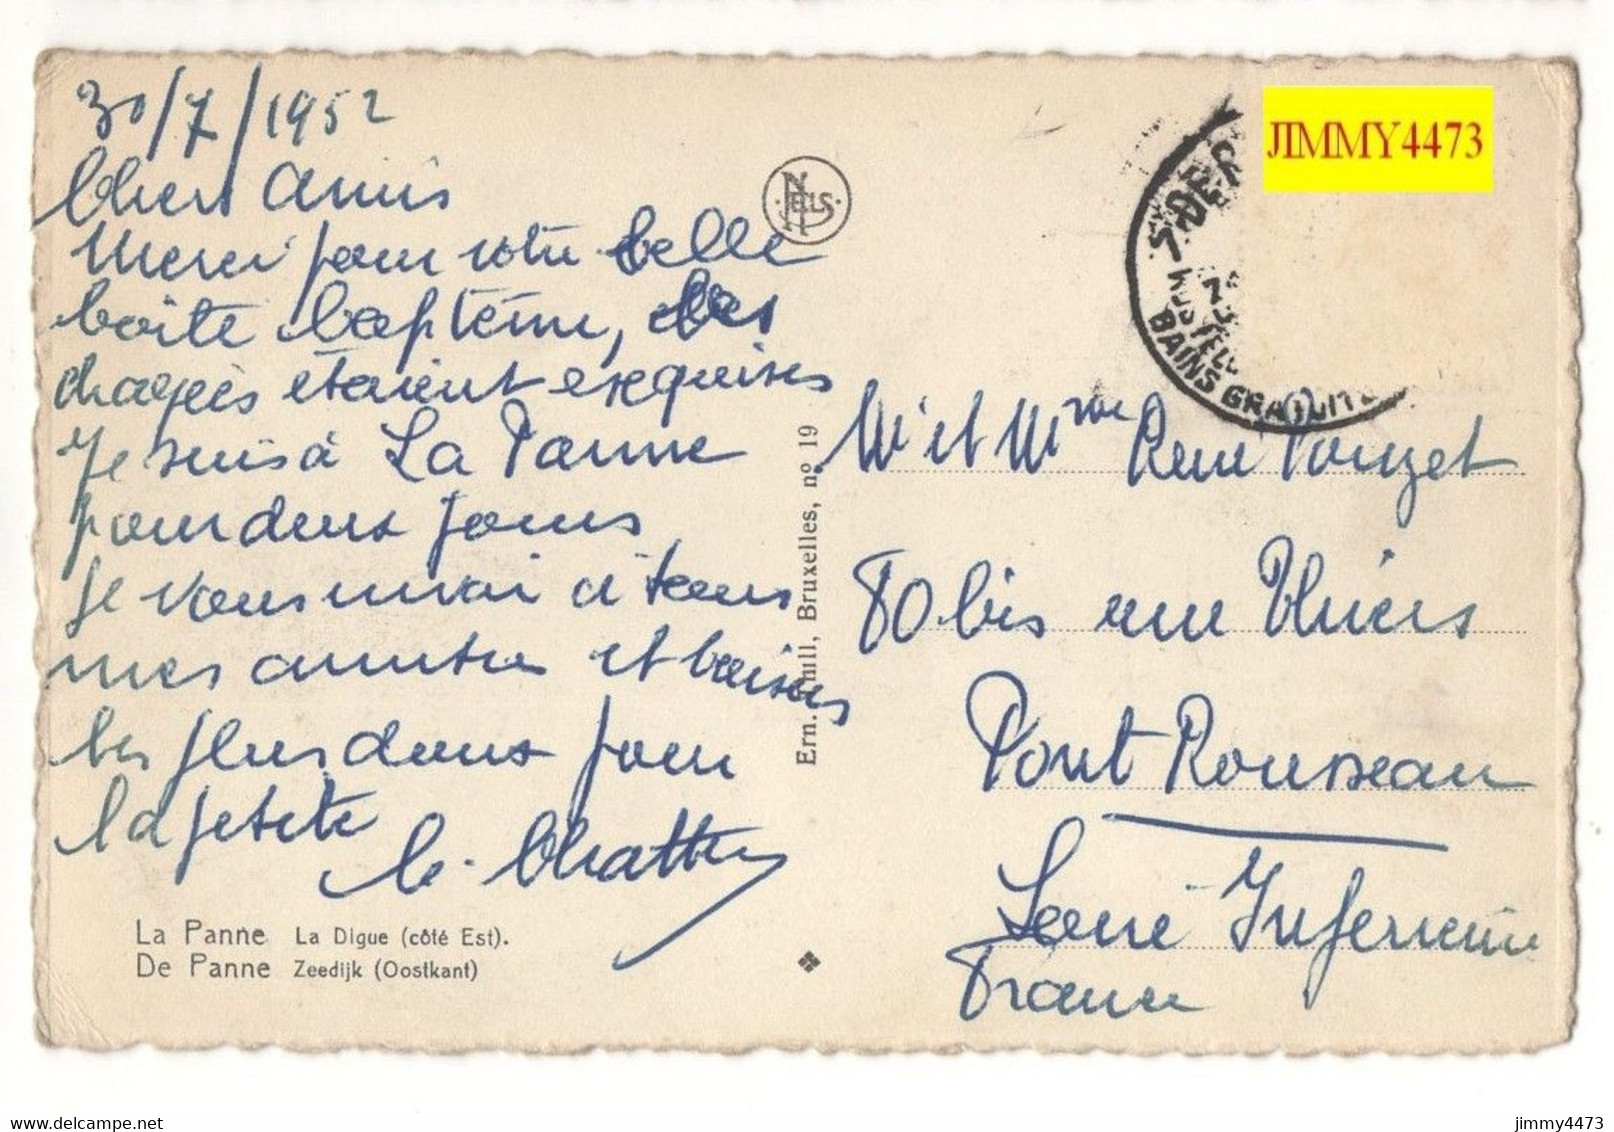 30/7/1952
Chers Amis
Merci pour votre belle
boîte baptême, les
dragées étaient exquises
Je suis à La Panne
pour deux jours
Je vous envoi à tous
mes amitiés et baisers
les plus doux pour
la petite
NELLS
Ern. Thill, Bruxelles, nº 19
La Panne La Digue (côté Est).
De Panne Zeedijk (Oostkant)
JIMMY4473
BAINS GRATUITS
Mr et Mme René Pouzet
80 bis rue Thiers
Pont Rousseau
Loire Inférieure
France
delcampe.net
jimmy4473